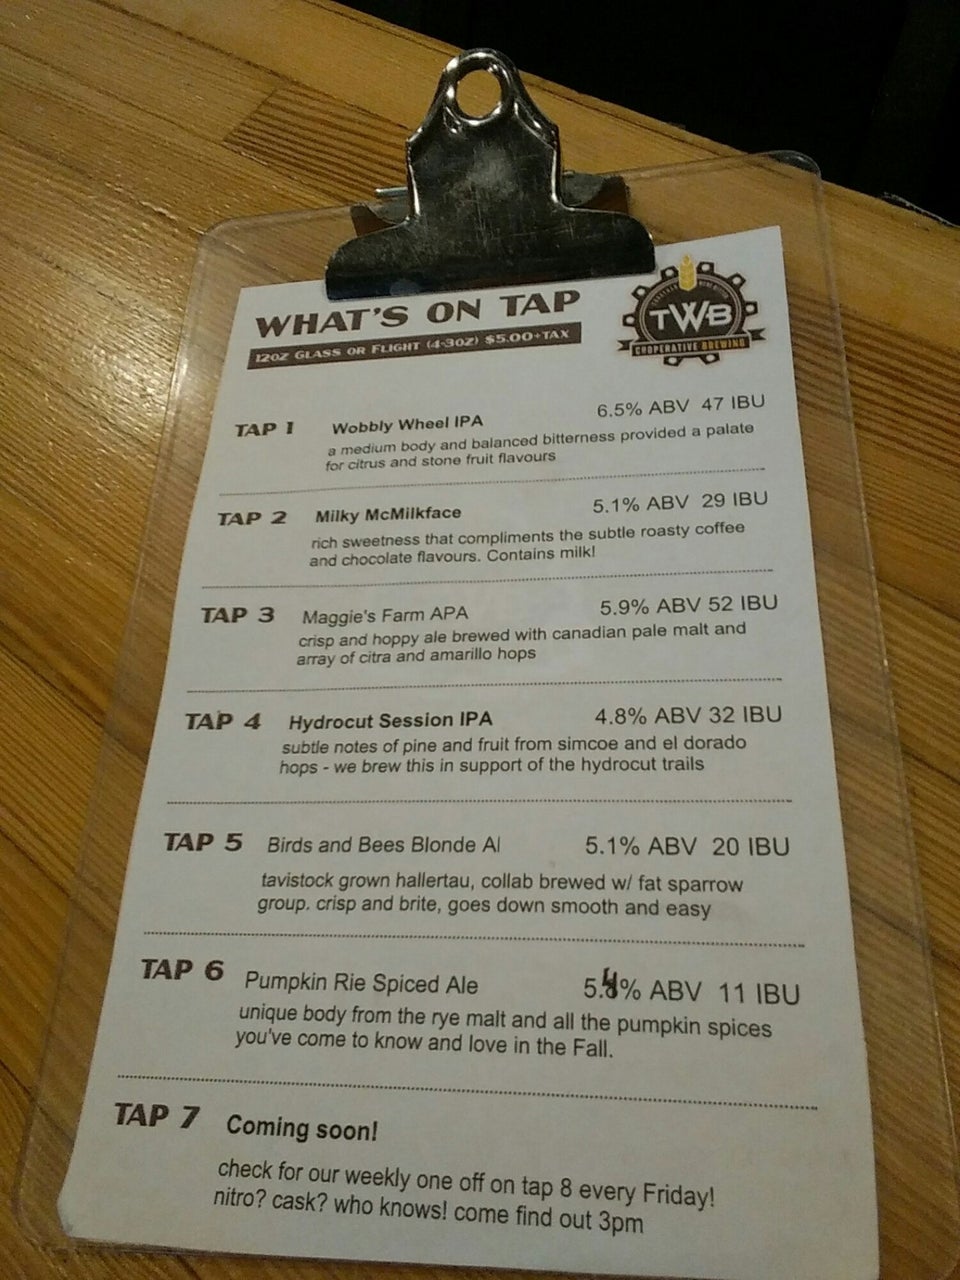 WHAT'S ON TAP
12OZ GLASS OR FLIGHT (4-3OZ) $5.00+TAX
TWB
COOPERATIVE BREWING
TAP 1 Wobbly Wheel IPA 6.5% ABV 47 IBU
a medium body and balanced bitterness provided a palate
for citrus and stone fruit flavours
TAP 2 Milky McMilkface 5.1% ABV 29 IBU
rich sweetness that compliments the subtle roasty coffee
and chocolate flavours. Contains milk!
TAP 3 Maggie's Farm APA 5.9% ABV 52 IBU
crisp and hoppy ale brewed with canadian pale malt and
array of citra and amarillo hops
TAP 4 Hydrocut Session IPA 4.8% ABV 32 IBU
subtle notes of pine and fruit from simcoe and el dorado
hops - we brew this in support of the hydrocut trails
TAP 5 Birds and Bees Blonde Al 5.1% ABV 20 IBU
tavistock grown hallertau, collab brewed w/ fat sparrow
group. crisp and brite, goes down smooth and easy
TAP 6 Pumpkin Rie Spiced Ale 5.4% ABV 11 IBU
unique body from the rye malt and all the pumpkin spices
you've come to know and love in the Fall.
TAP 7 Coming soon!
check for our weekly one off on tap 8 every Friday!
nitro? cask? who knows! come find out 3pm